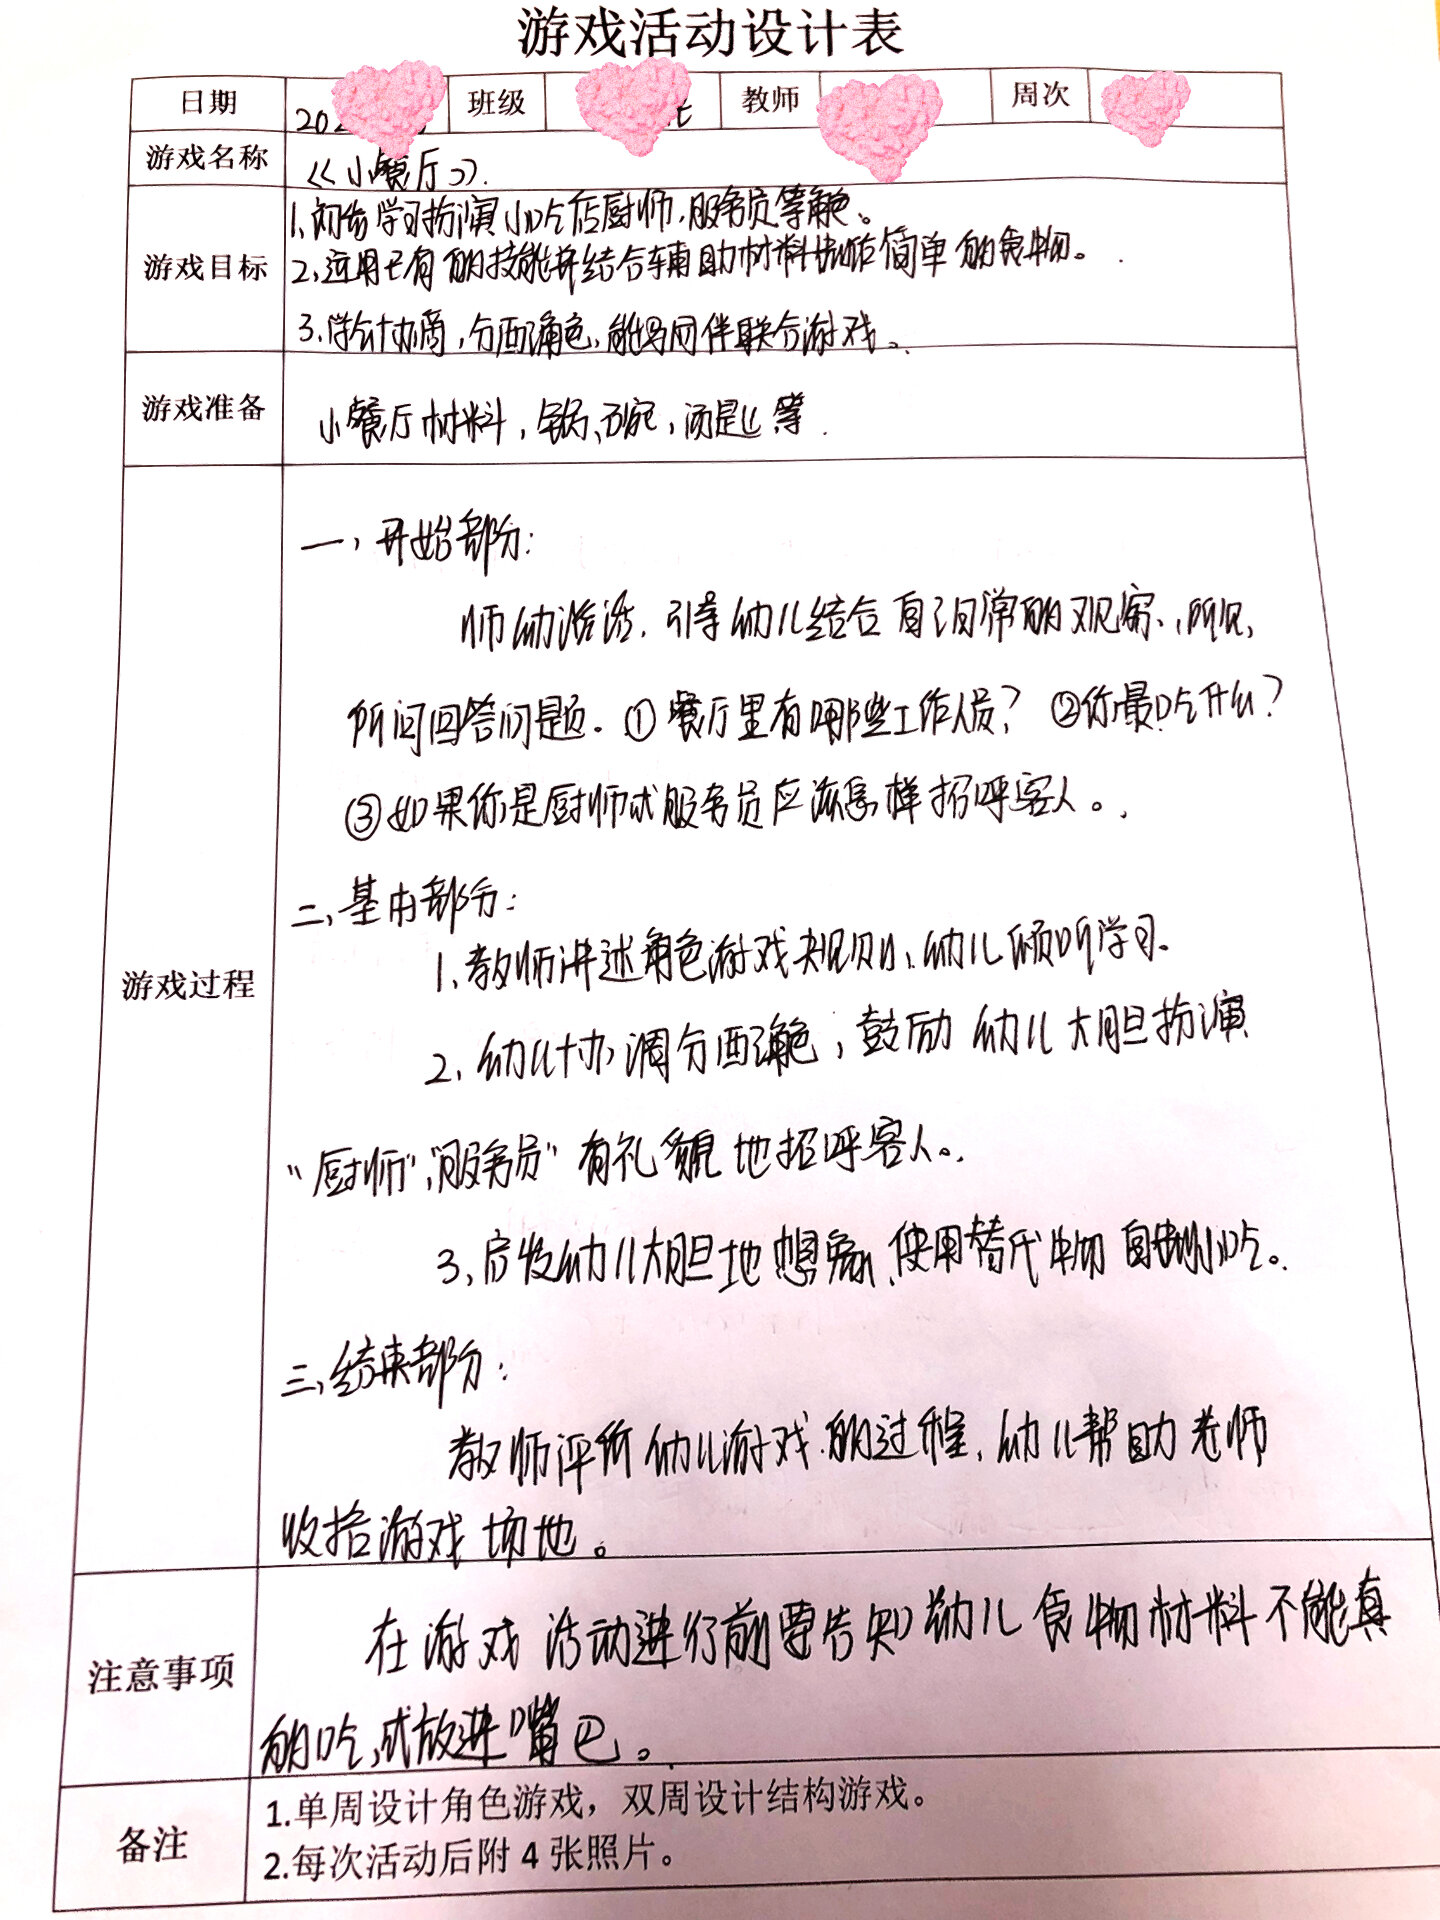 游戏活动设计表
日期 202 班级 教师 周次
游戏名称 《小餐厅》.
游戏目标
1.初步学习扮演小吃店厨师,服务员等角色。
2.运用已有的技能并结合辅助材料制作简单的食物。
3.学会协商,分配角色,能与同伴联合游戏。
游戏准备 小餐厅材料,锅、碗,汤匙等.
游戏过程
一,开始部分:
师幼谈话.引导幼儿结合自己日常的观察、,所见,
所问回答问题。①餐厅里有哪些工作人员?②你最吃什么?
③如果你是厨师或服务员应该怎样招呼客人。
二,基本部分:
1.教师讲述角色游戏规则、幼儿倾听学习.
2,幼儿协调分配角色,鼓励幼儿大胆扮演
“厨师”,“服务员”有礼貌地招呼客人。
3,启发幼儿大胆地想象,使用替代物自制小吃。
三,结束部分:
教师评价幼儿游戏的过程,幼儿帮助老师
收拾游戏场地。
注意事项
在游戏活动进行前要告知幼儿食物材料不能真
的吃,或放进嘴巴。
备注
1.单周设计角色游戏,双周设计结构游戏。
2.每次活动后附 4 张照片。